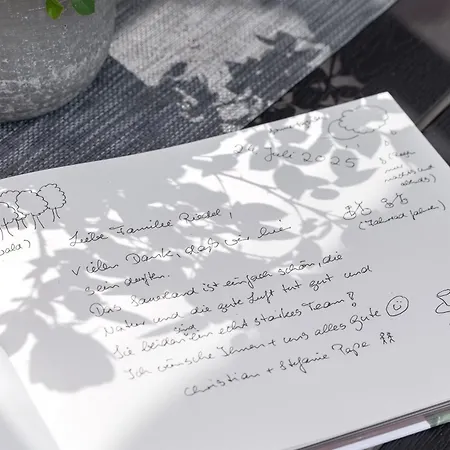 24 Juli 2025
(Regen
nur
nachts und
abends)
(Fahrrad fahren)
Liebe Familie Riedel,
Vielen Dank, daß wir hier
sein durften.
Das Sauerland ist einfach schön, die
Natur und die gute Luft tut gut und
Sie beiden sind ein echt starkes Team!
Ich wünsche Ihnen + uns alles Gute
Christian + Stefanie Pape